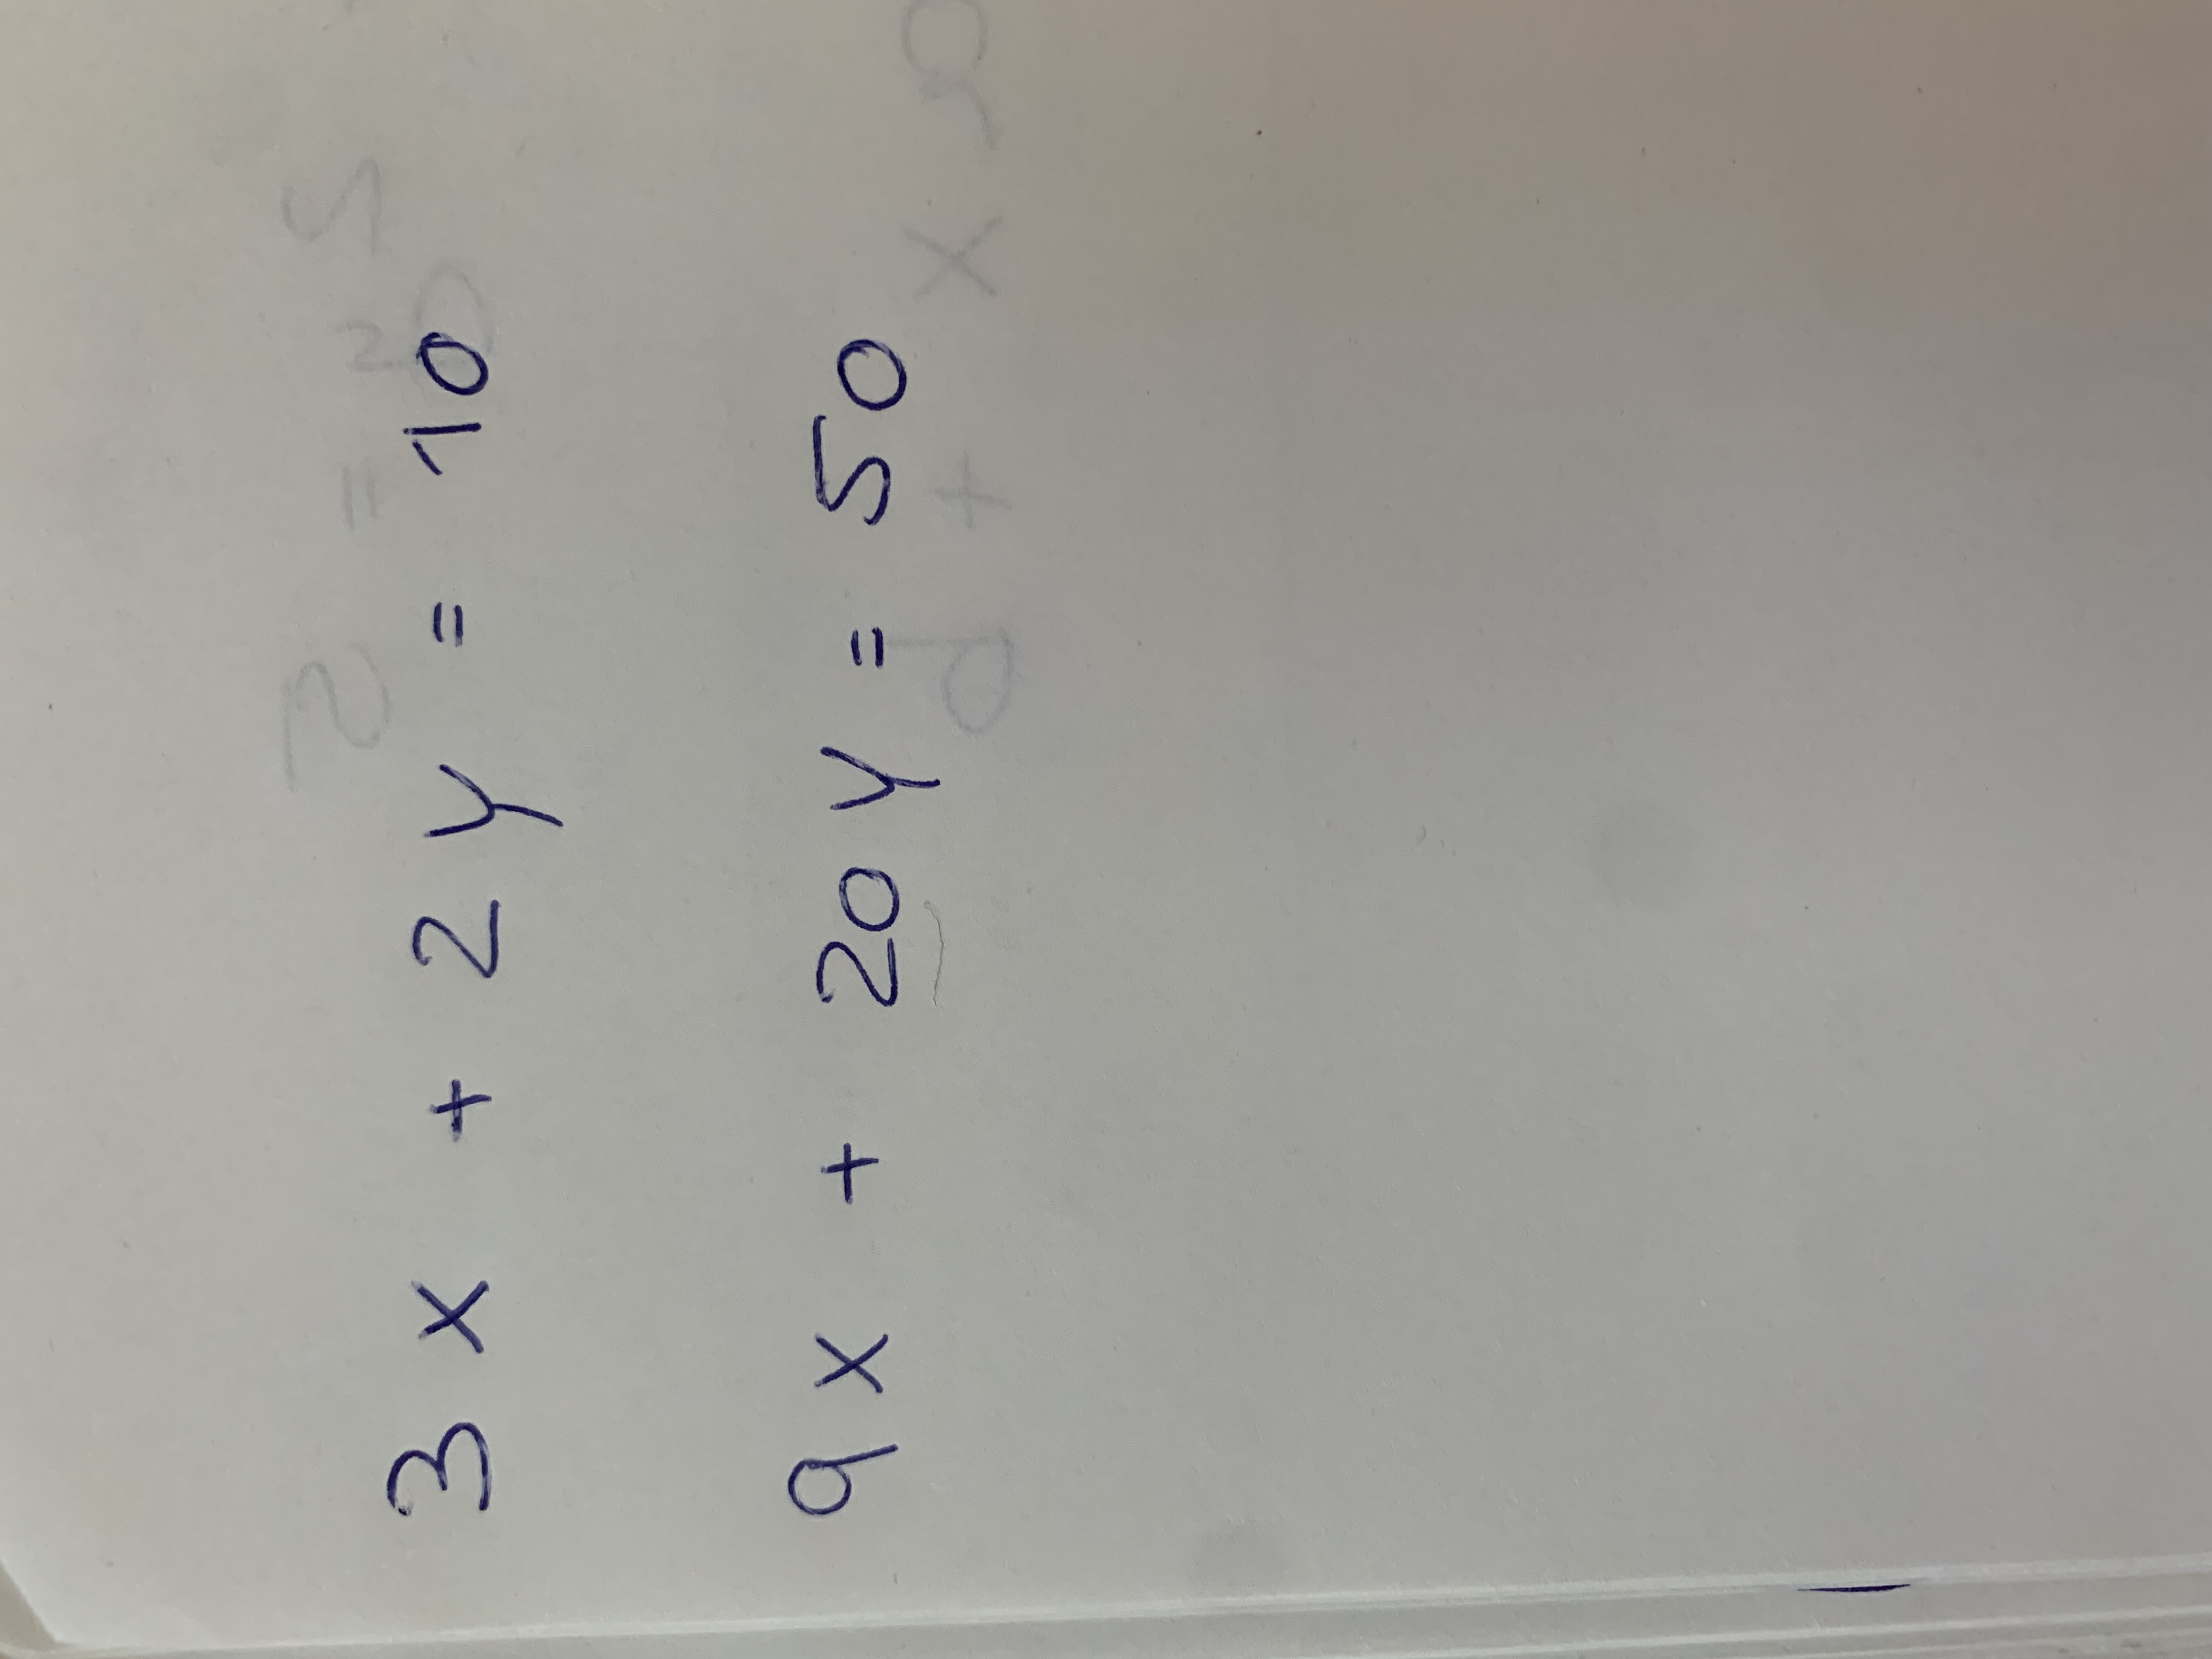 3x + 2y = 10
9x + 20y = 50